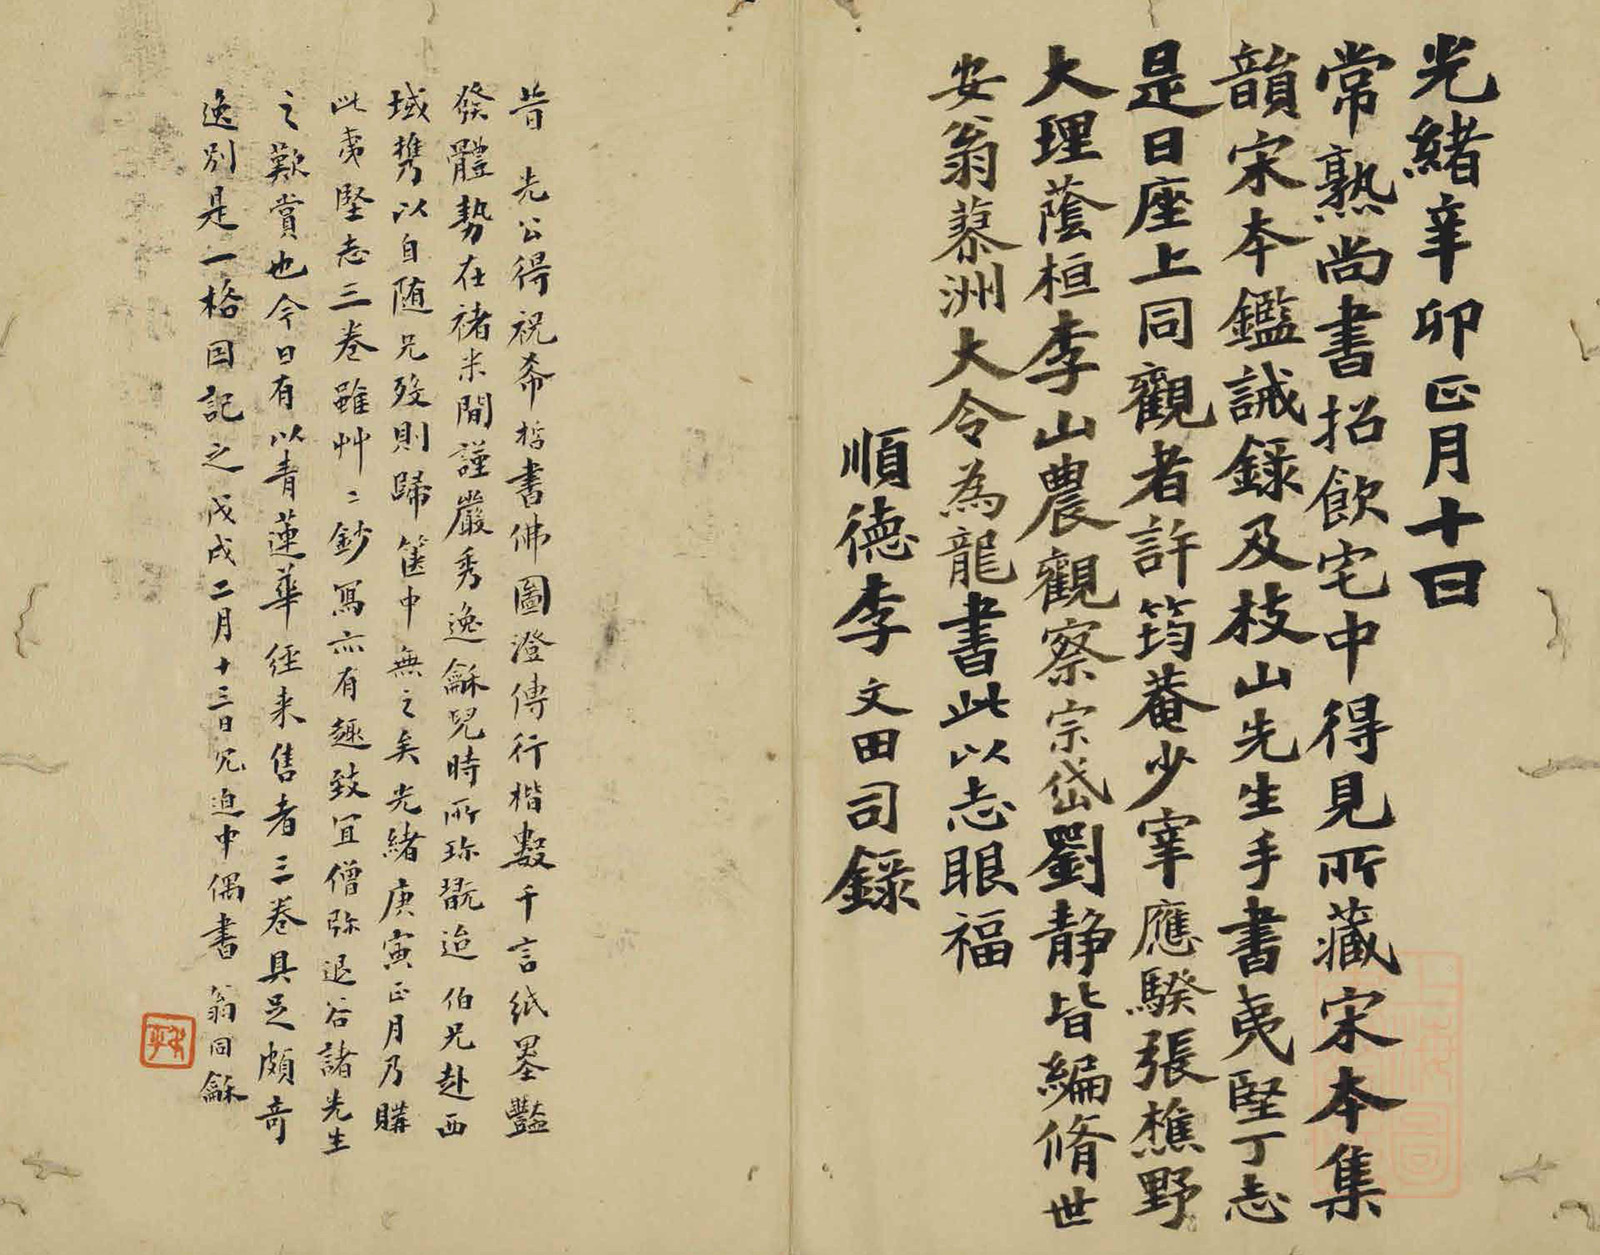 光緒辛卯正月十日
常熟尚書招飲宅中得見所藏宋本集
韻宋本鑑誡錄及枝山先生手書夷堅丁志
是日座上同觀者許筠菴少宰應騤張樵野
大理蔭桓李山農觀察宗岱劉靜皆編脩世
安翁蓀洲大令為龍書此以志眼福
順德李文田司錄
昔先公得祝希哲書佛圖澄傳行楷數千言紙墨豔
發體勢在褚米間謹嚴秀逸龢兒時所珍翫迨伯兄赴西
域攜以自隨兄歿則歸篋中無之矣光緒庚寅正月乃購
此夷堅志三卷雖艸〻鈔寫亦有趣致宜僧弥退谷諸先生
之歎賞也今日有以青蓮華經來售者三卷具足頗奇
逸別是一格因記之戊戌二月十三日冗迫中偶書 翁同龢